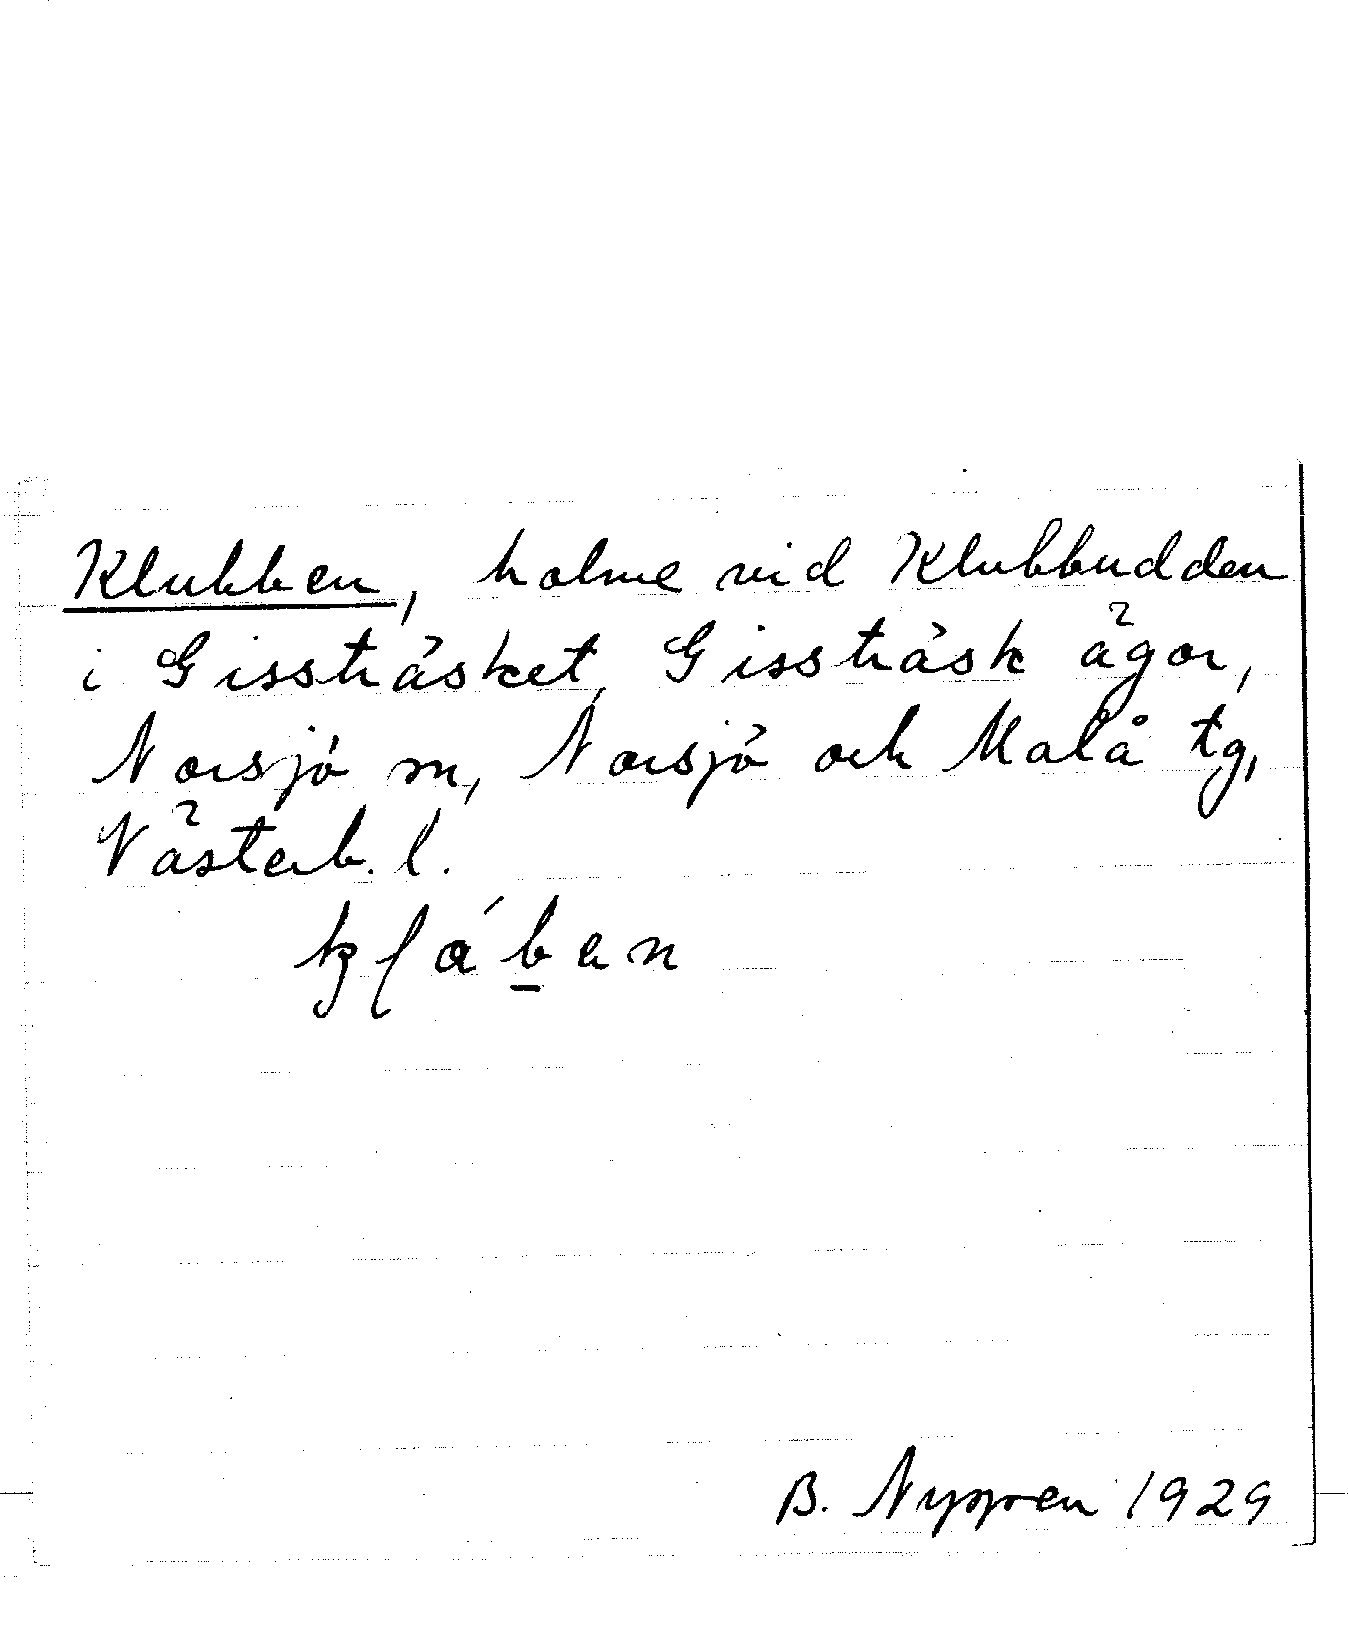 Klubben, holme vid Klubbudden
i Gissträsket, Gissträsk ägor,
Norsjö sn, Norsjö och Malå tg,
Västerb. l.
B. Nygren 1929